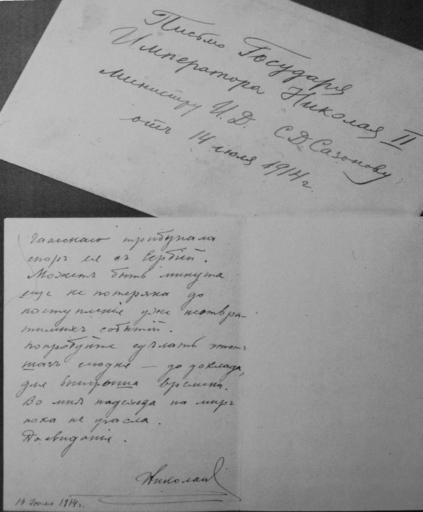 Письмо Государя
Императора Николая II
Министру И.Д. С.Д. Сазонову
отъ 14 июля 1914 г.
Гаагскаго трибунала
споръ ея съ Сербіей.
Можетъ быть минута
еще не потеряна до
наступленія уже неотвра-
тимыхъ событій.
Попробуйте сдѣлать этотъ
шагъ сегодня — до доклада,
для выигрыша времени.
Во мнѣ надежда на миръ
пока не угасла.
До свиданія.
Николай
14 июля 1914 г.